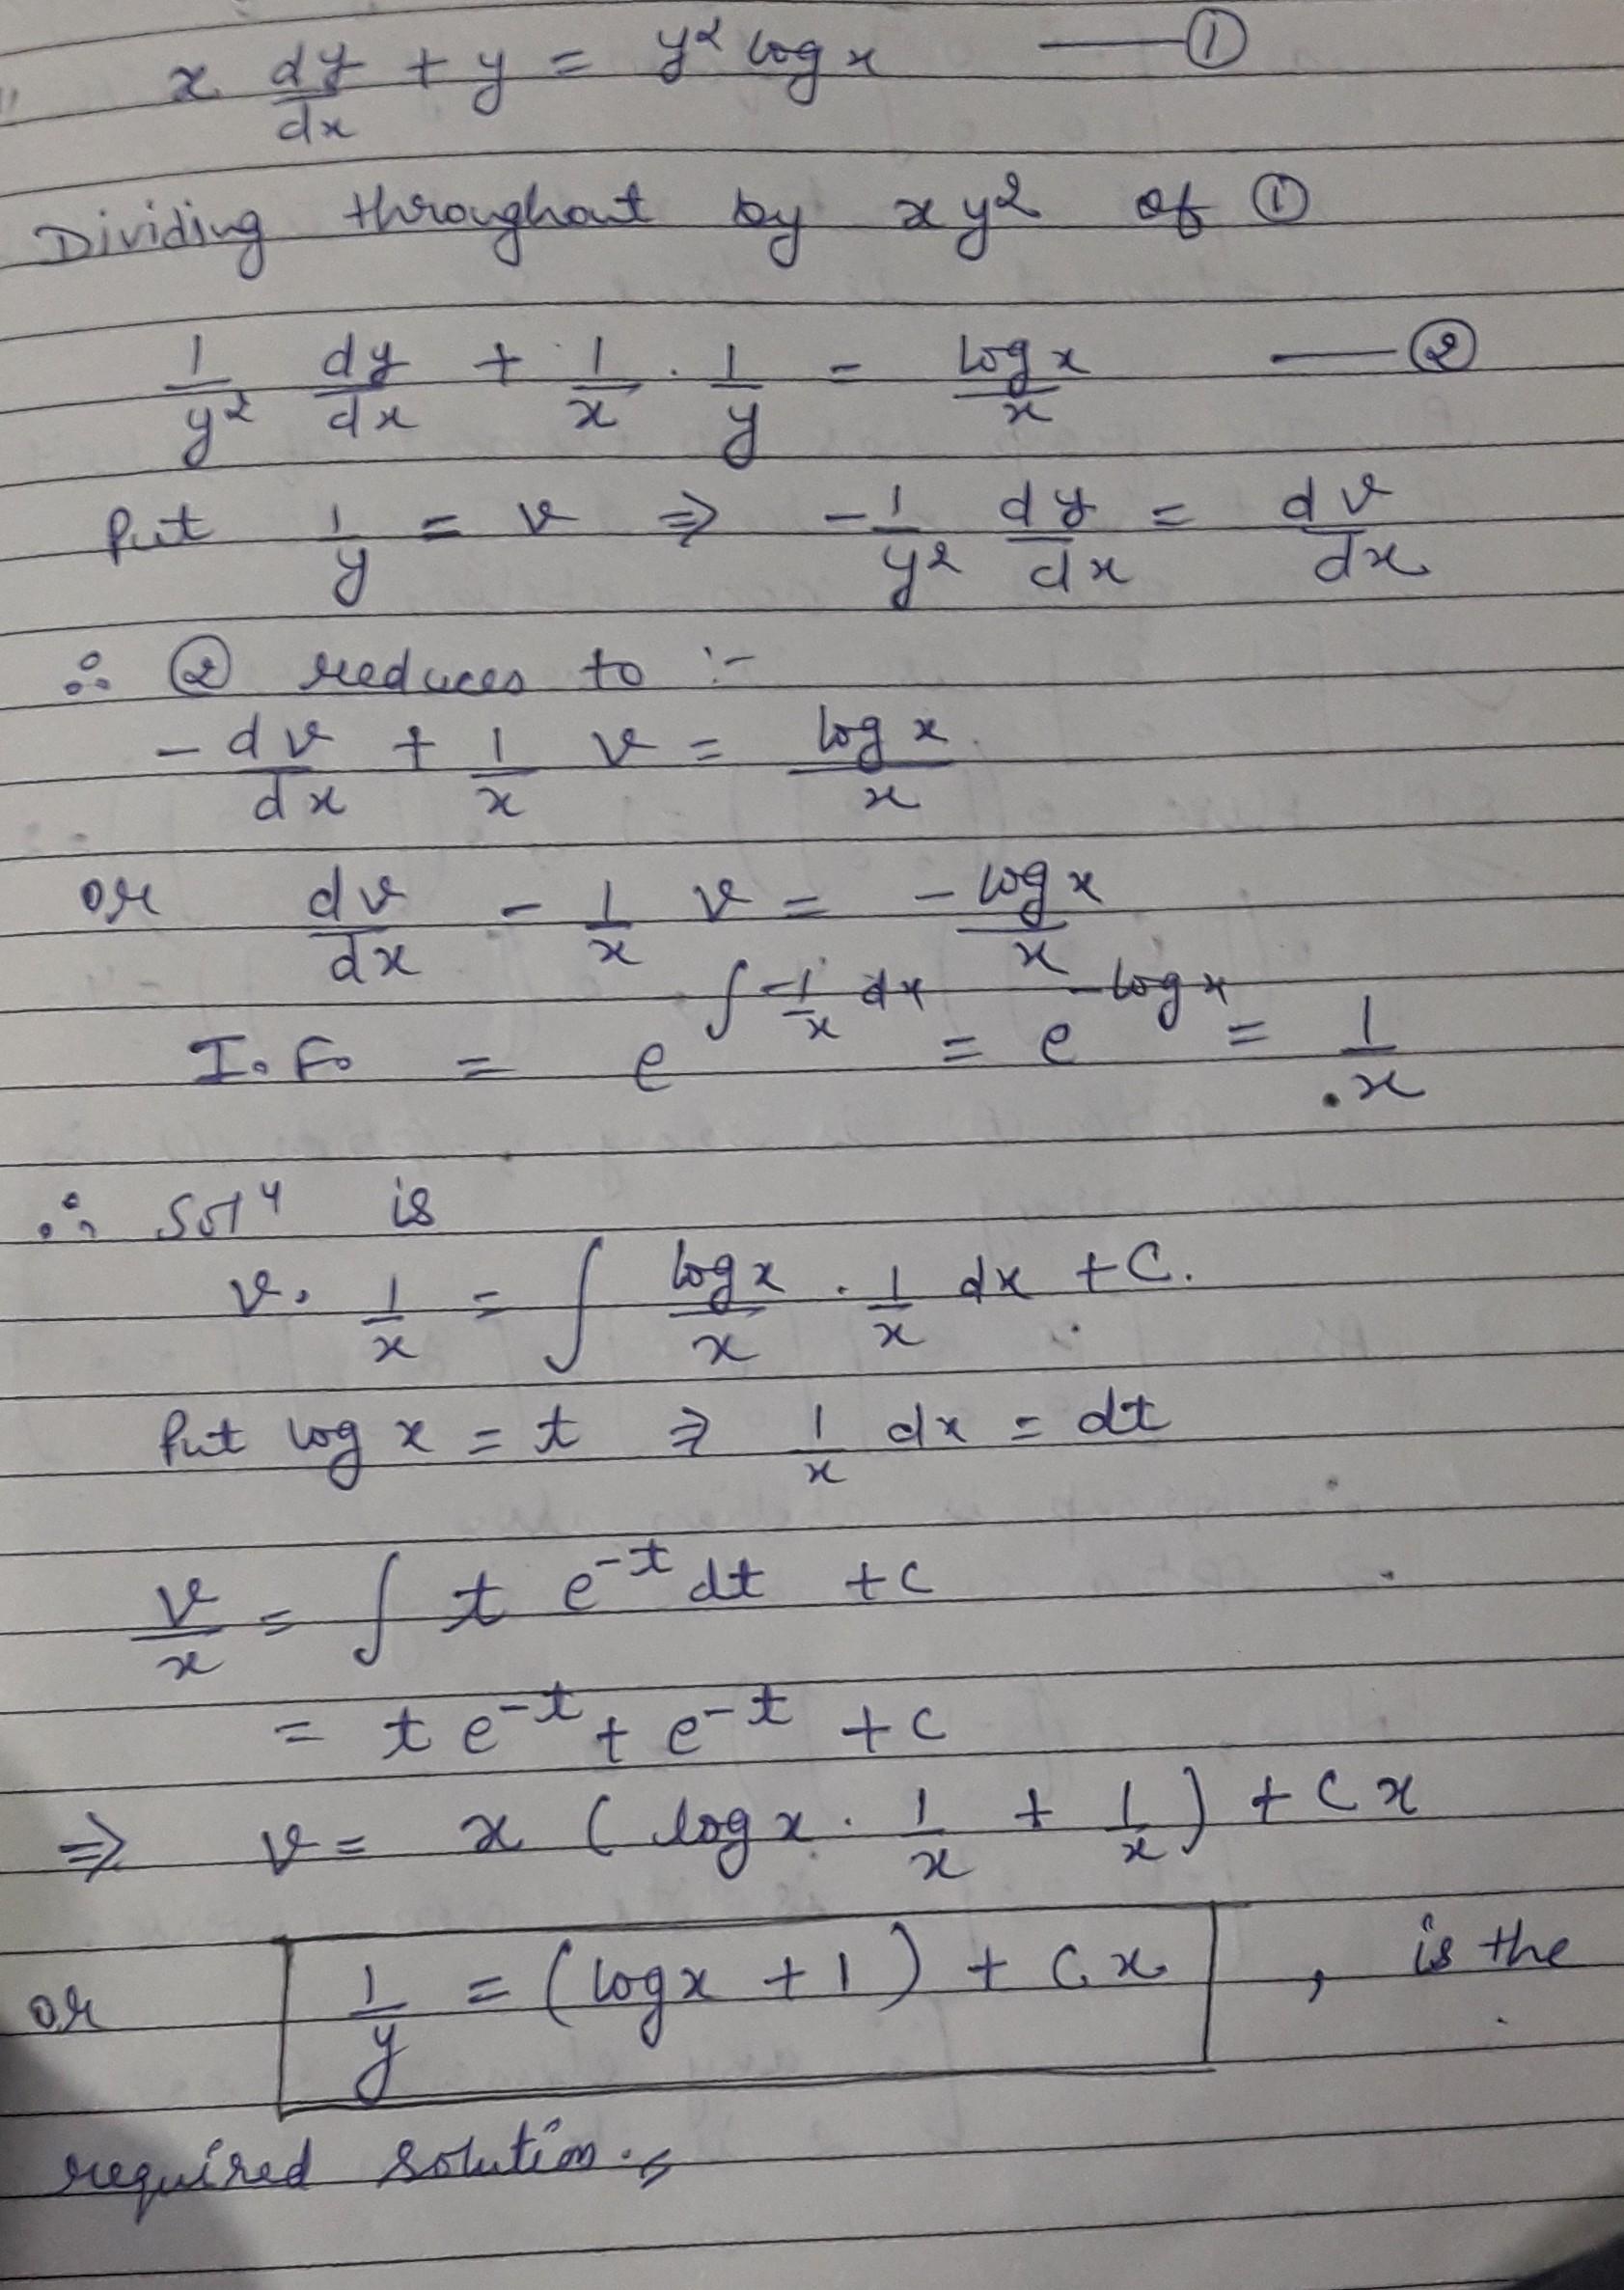 x dy/dx + y = y² log x —— ①
Dividing throughout by xy² of ①
1/y² dy/dx + 1/x . 1/y = log x/x —— ②
Put 1/y = v ⇒ -1/y² dy/dx = dv/dx
∴ ② reduces to :-
-dv/dx + 1/x v = log x/x
or dv/dx - 1/x v = -log x/x
I.F. = e^∫-1/x dx = e^-log x = 1/x
∴ Solⁿ is
v. 1/x = ∫ log x/x . 1/x dx + C.
Put log x = t ⇒ 1/x dx = dt
v/x = ∫ t e^-t dt + c
= t e^-t + e^-t + c
⇒ v = x ( log x . 1/x + 1/x ) + Cx
or 1/y = (log x + 1) + Cx , is the
required solution.